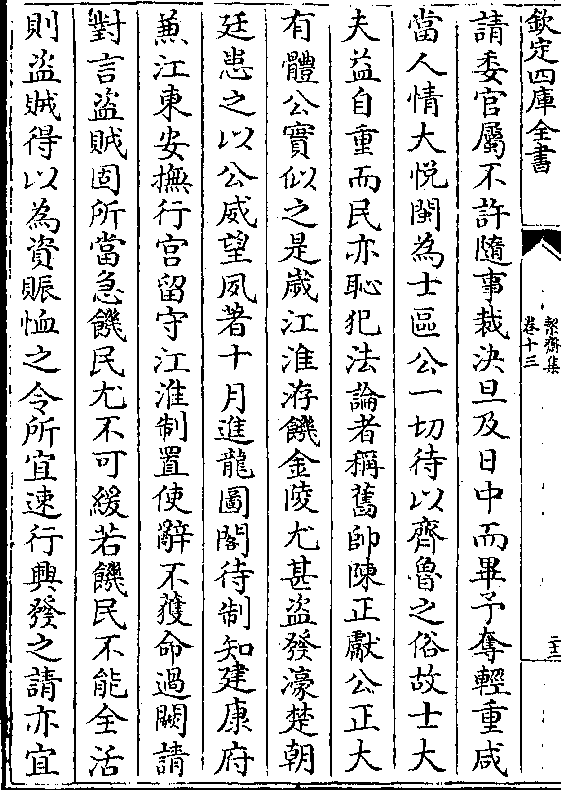 欽定四庫全書
絜齋集
卷十三
二十三
請委官屬不許隨事裁決旦及日中而畢予奪輕重咸
當人情大悅閩為士區公一切待以齊魯之俗故士大
夫益自重而民亦恥犯法論者稱舊帥陳正獻公正大
有體公實似之是歲江淮洊饑金陵尤甚盜發濠楚朝
廷患之以公威望夙著十月進龍圖閣待制知建康府
兼江東安撫行宫留守江淮制置使辭不獲命過闕請
對言盜賊固所當急饑民尤不可緩若饑民不能全活
則盜賊得以為資賑恤之令所宜速行興發之請亦宜